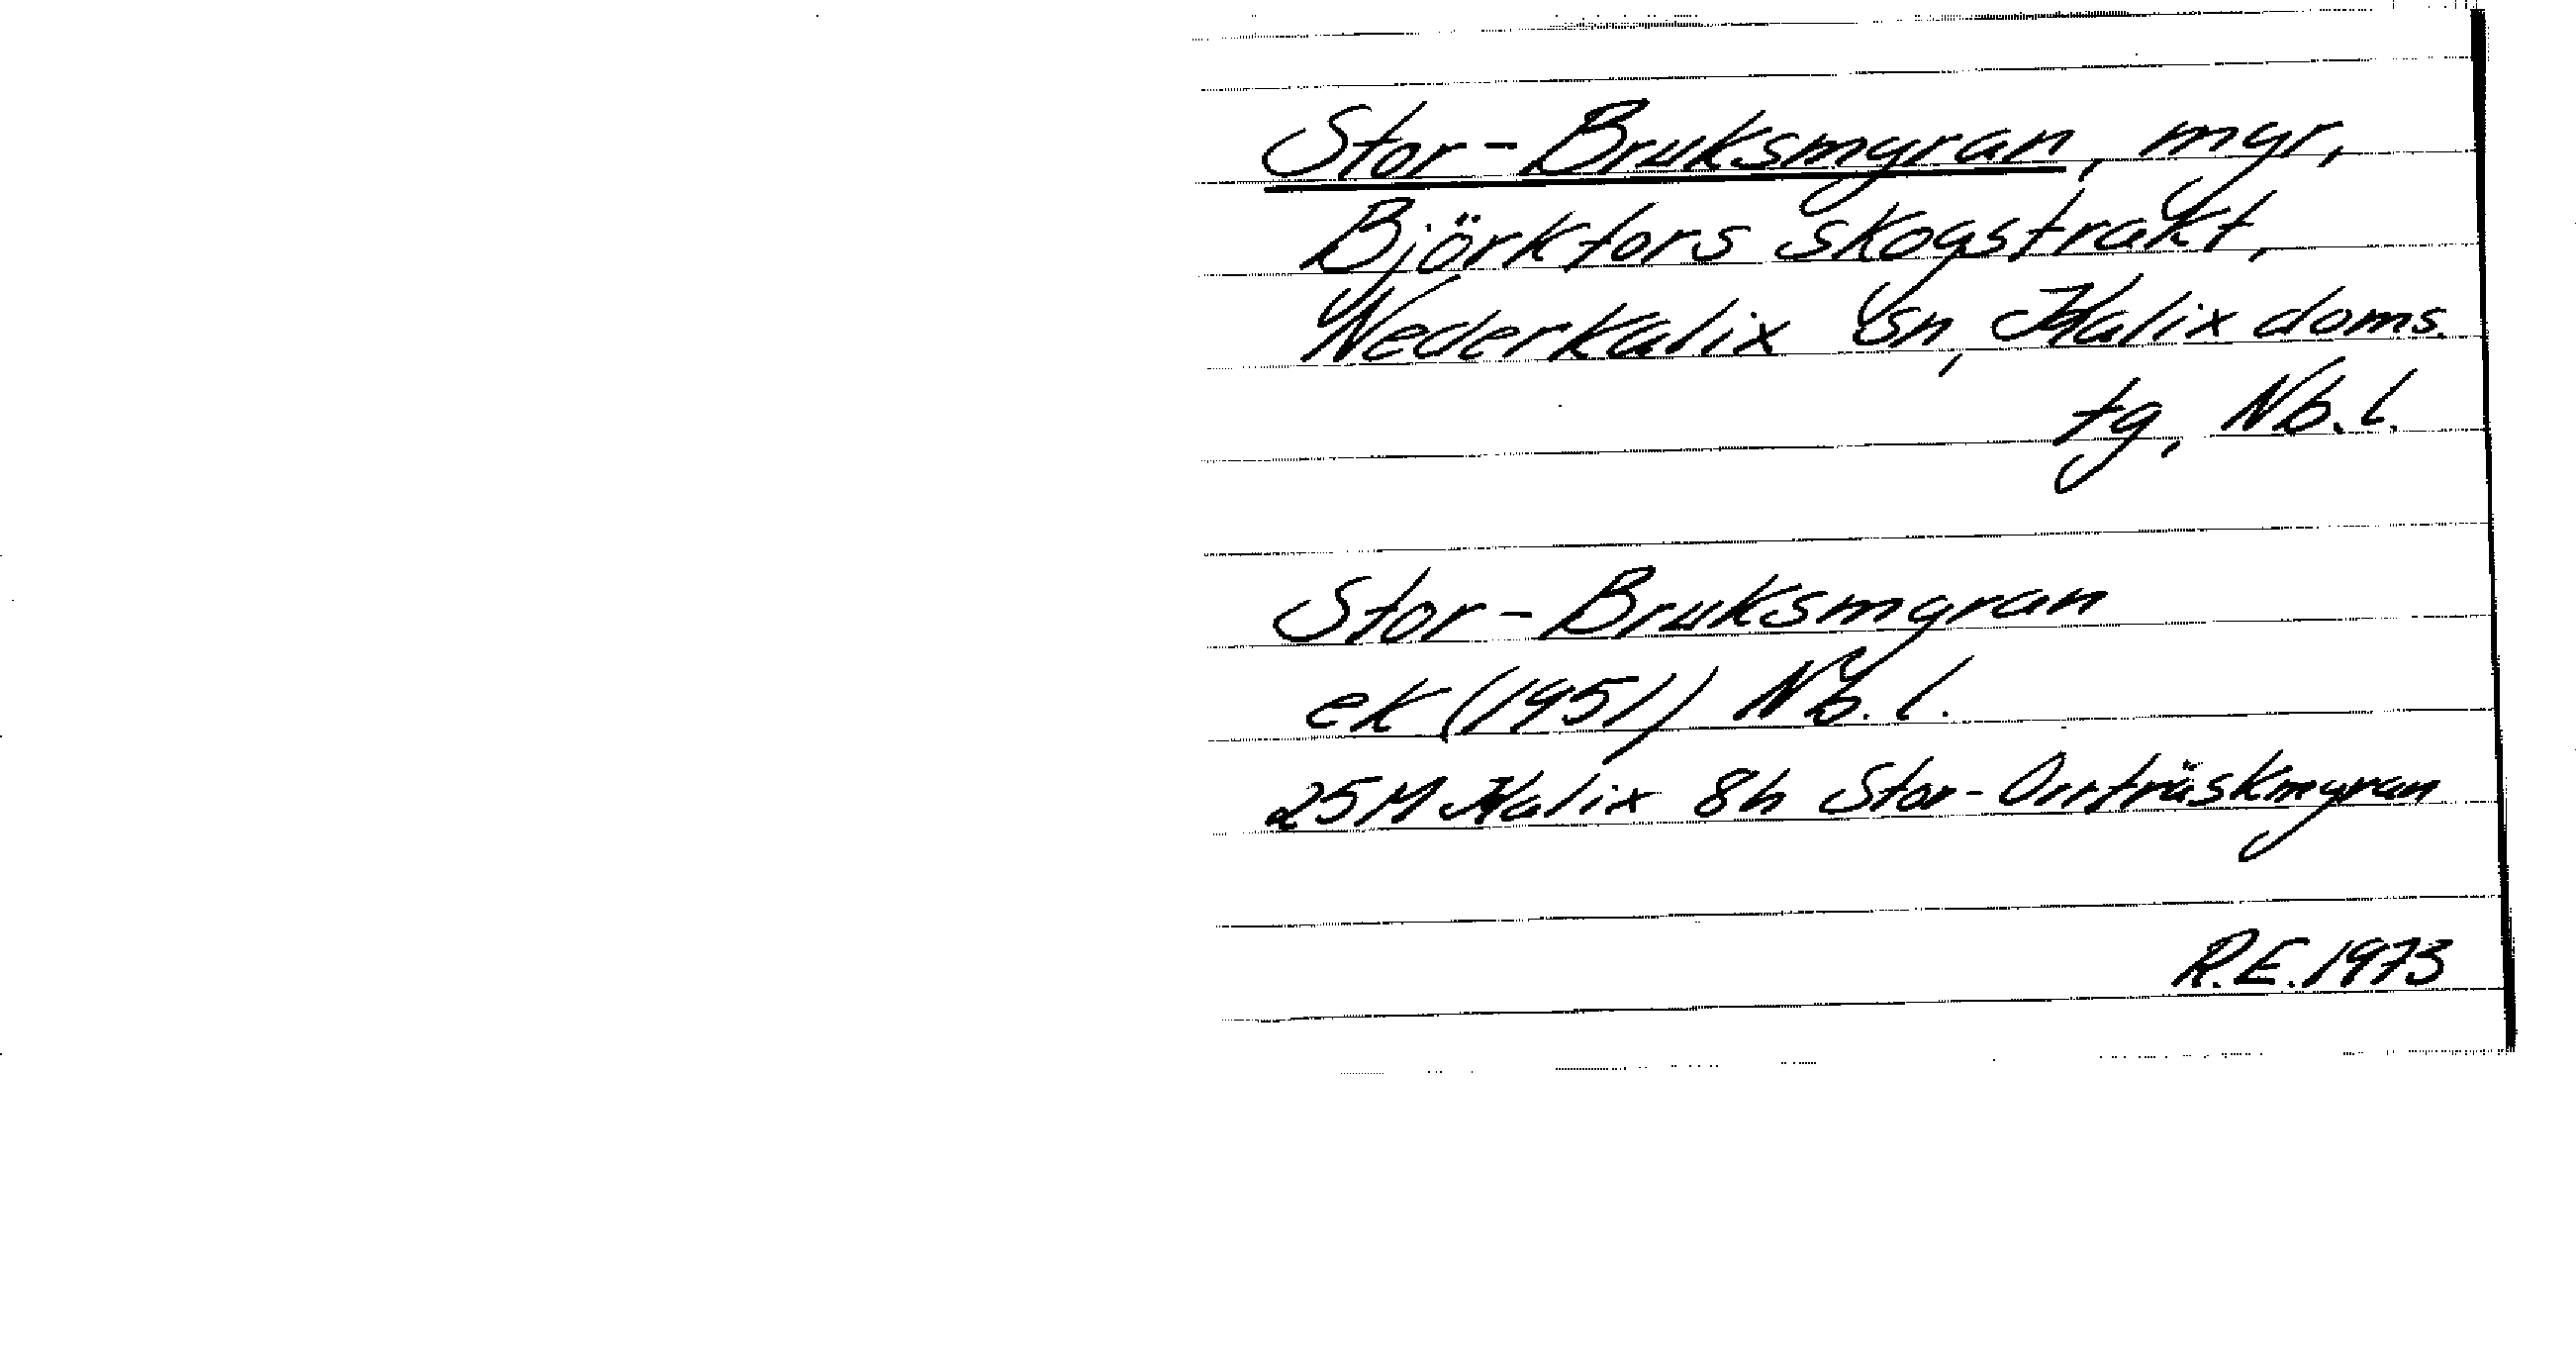 Stor-Bruksmyran, myr,
Björkfors skogstrakt,
Nederkalix sn, Kalix doms.
tg, Nb.l.
Stor-Bruksmyran
ek (1951) Nb.l.
25M Kalix 8h Stor-Orrträskmyran
R.E. 1973